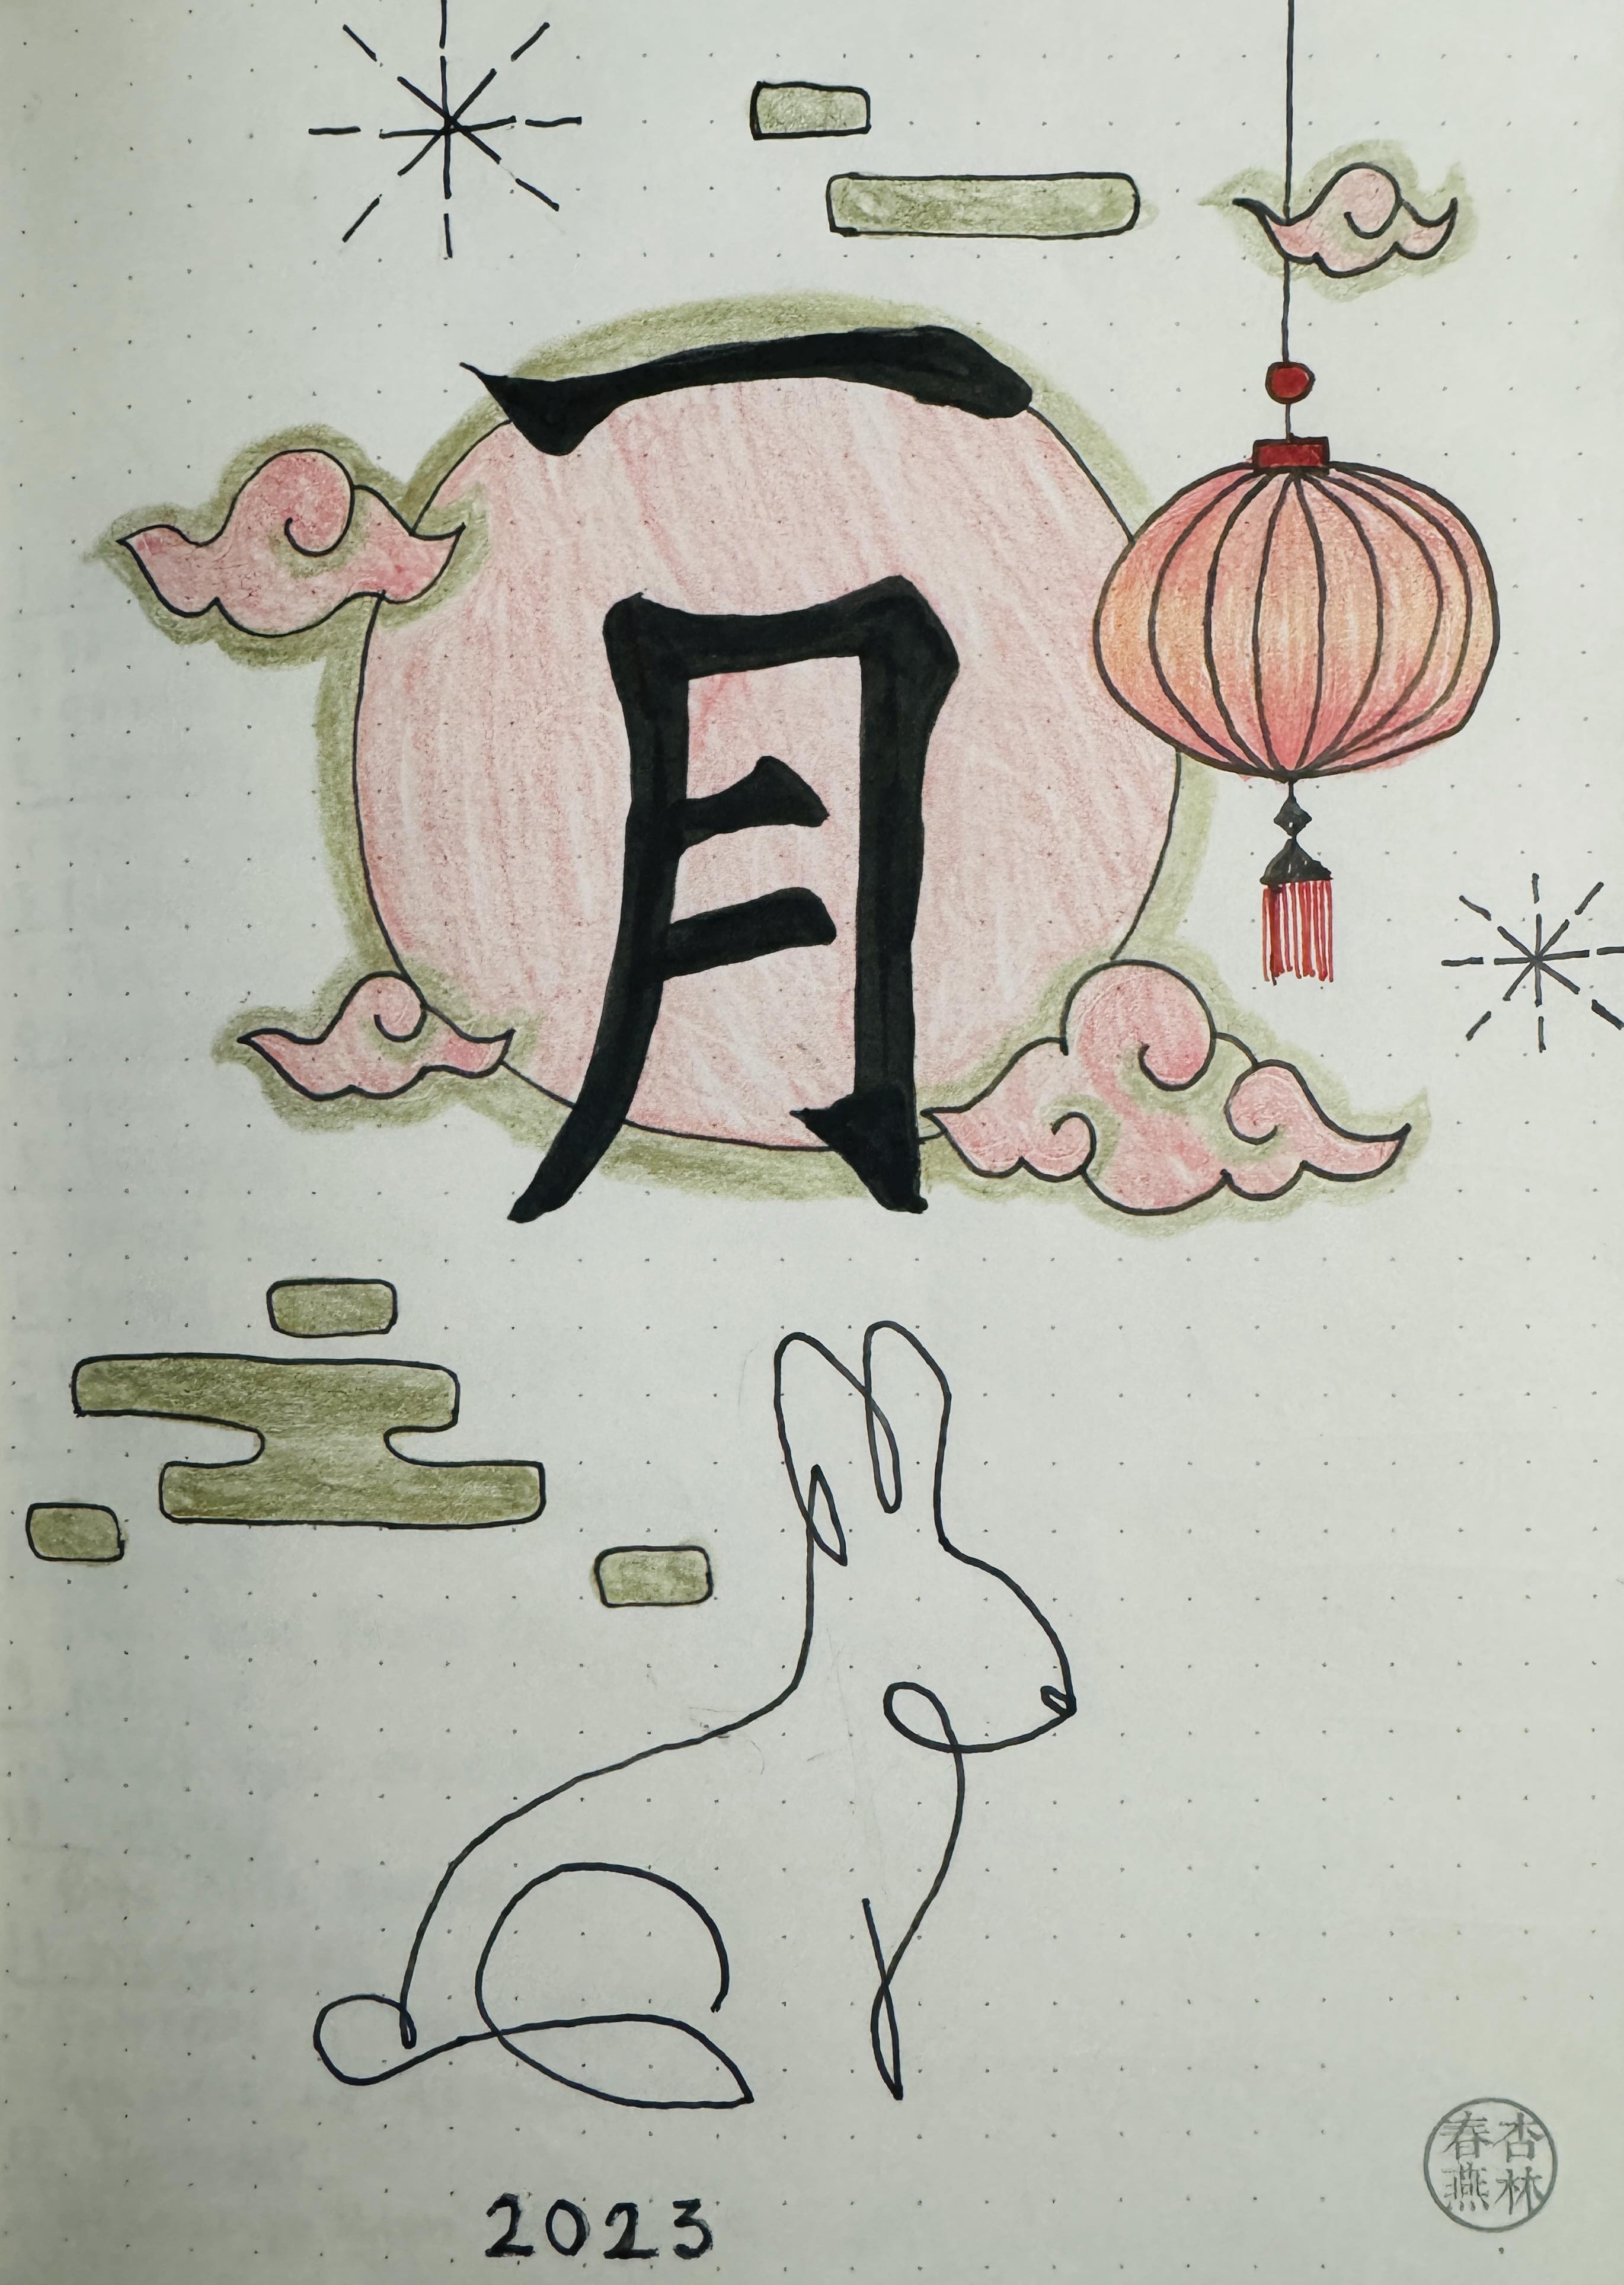 一
月
2023
杏林
春燕